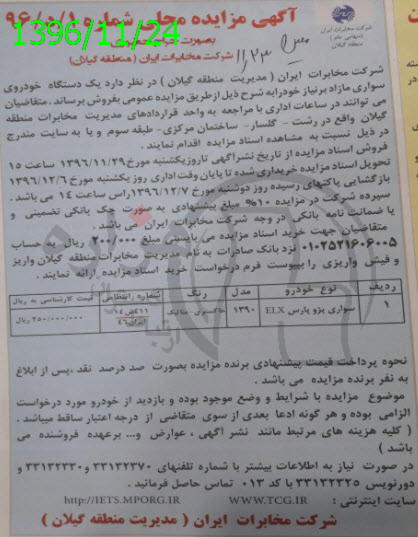 آگهی مزایده محلی شماره ۹۶/۵/۱
1396/11/24
بصورت
شرکت مخابرات ایران (منطقه گیلان)
شرکت مخابرات ایران
(سهامی عام)
منطقه گیلان
شرکت مخابرات ایران ( مدیریت منطقه گیلان ) در نظر دارد یک دستگاه خودروی
سواری مازاد بر نیاز خود را به شرح ذیل از طریق مزایده عمومی بفروش برساند . متقاضیان
می توانند در ساعات اداری با مراجعه به واحد قراردادهای مدیریت مخابرات منطقه
گیلان واقع در رشت - گلسار- ساختمان مرکزی- طبقه سوم و یا به سایت مندرج
در ذیل نسبت به مشاهده اسناد مزایده اقدام نمایند .
فروش اسناد مزایده از تاریخ نشر آگهی تا روز یکشنبه مورخ ۱۳۹۶/۱۱/۲۹ ساعت ۱۵
تحویل اسناد مزایده خریداری شده تا پایان وقت اداری روز یکشنبه مورخ ۱۳۹۶/۱۲/۶
بازگشایی پاکتهای رسیده روز دوشنبه مورخ ۱۳۹۶/۱۲/۷ راس ساعت ۱۴ می باشد .
سپرده شرکت در مزایده ۱۰% مبلغ پیشنهادی به صورت چک بانکی تضمینی و
یا ضمانت نامه بانکی در وجه شرکت مخابرات ایران می باشد .
متقاضیان جهت خرید اسناد مزایده می بایستی مبلغ ۲۰۰/۰۰۰ ریال به حساب
۰۱۰۲۵۲۱۶۰۶۰۰۵ نزد بانک صادرات به نام مدیریت مخابرات منطقه گیلان واریز
و فیش واریزی را بپیوست فرم درخواست خرید اسناد مزایده ارائه نمایند .
ردیف نوع خودرو مدل رنگ شماره انتظامی قیمت کارشناسی به ریال
۱ سواری پژو پارس ELX ۱۳۹۰ خاکستری- متالیک ایران ۴۶ ۲۵۰/۰۰۰/۰۰۰ ریال
نحوه پرداخت قیمت پیشنهادی برنده مزایده بصورت صد درصد نقد ،پس از ابلاغ
به نفر برنده مزایده می باشد .
موضوع مزایده با شرایط و وضع موجود بوده و بازدید از خودرو مورد درخواست
الزامی بوده و هر گونه ادعا بعدی از سوی متقاضی از درجه اعتبار ساقط میباشد .
( کلیه هزینه های مرتبط مانند نشر آگهی ، عوارض و... برعهده فروشنده می
باشد )
در صورت نیاز به اطلاعات بیشتر با شماره تلفنهای ۳۳۱۳۲۳۷۰ و ۳۳۱۳۲۳۳۰ و
دورنویس ۳۳۱۳۲۳۲۵ با کد ۰۱۳ تماس حاصل فرمائید .
سایت اینترنتی : WWW.TCG.IR http://IETS.MPORG.IR
شرکت مخابرات ایران ( مدیریت منطقه گیلان )